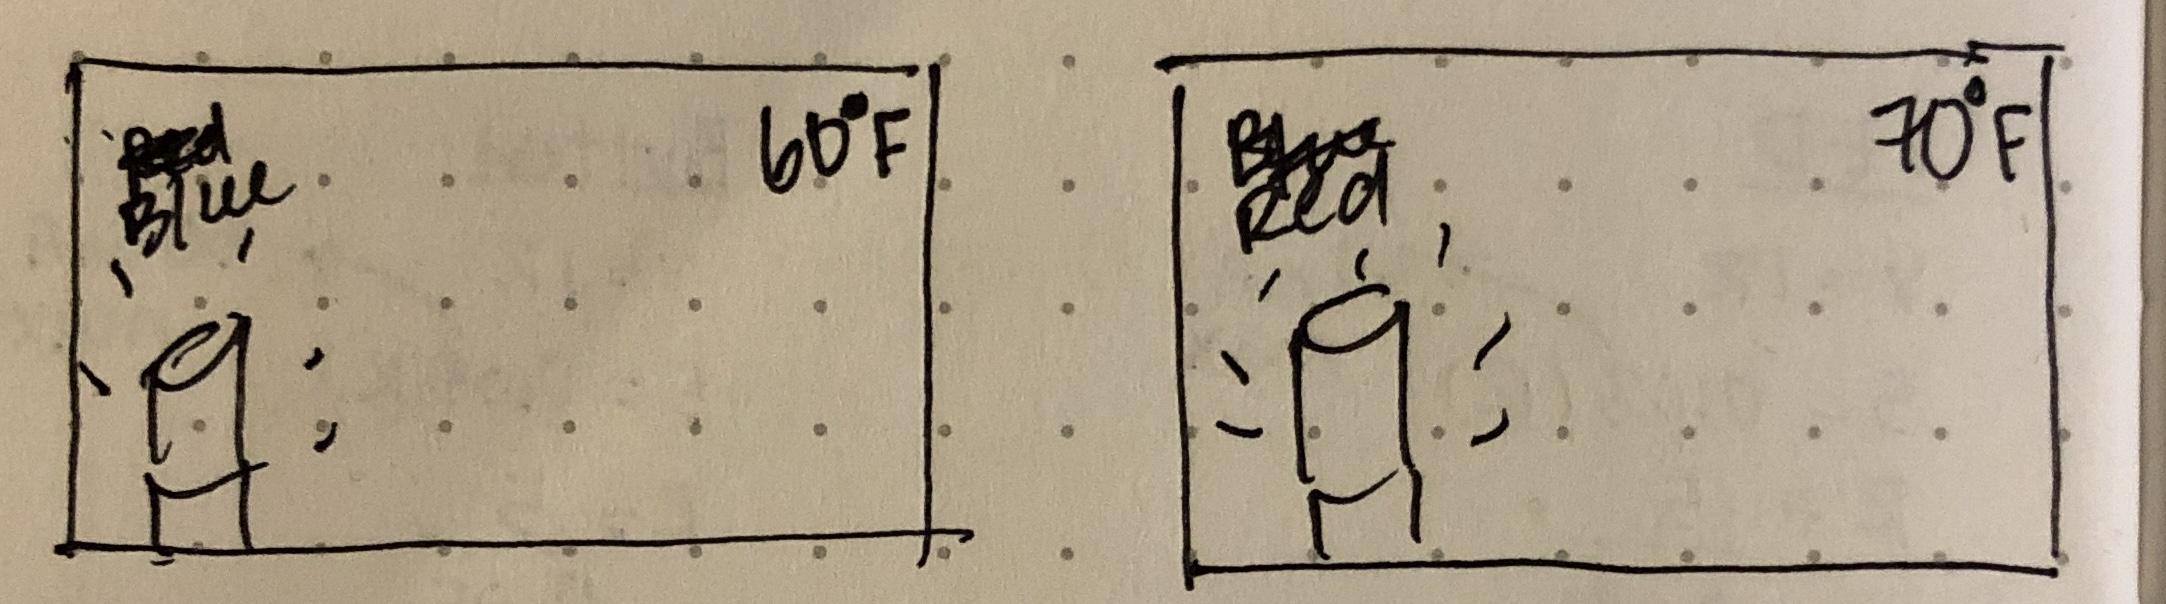 Red
Blue
60°F
Blue
Red
70°F